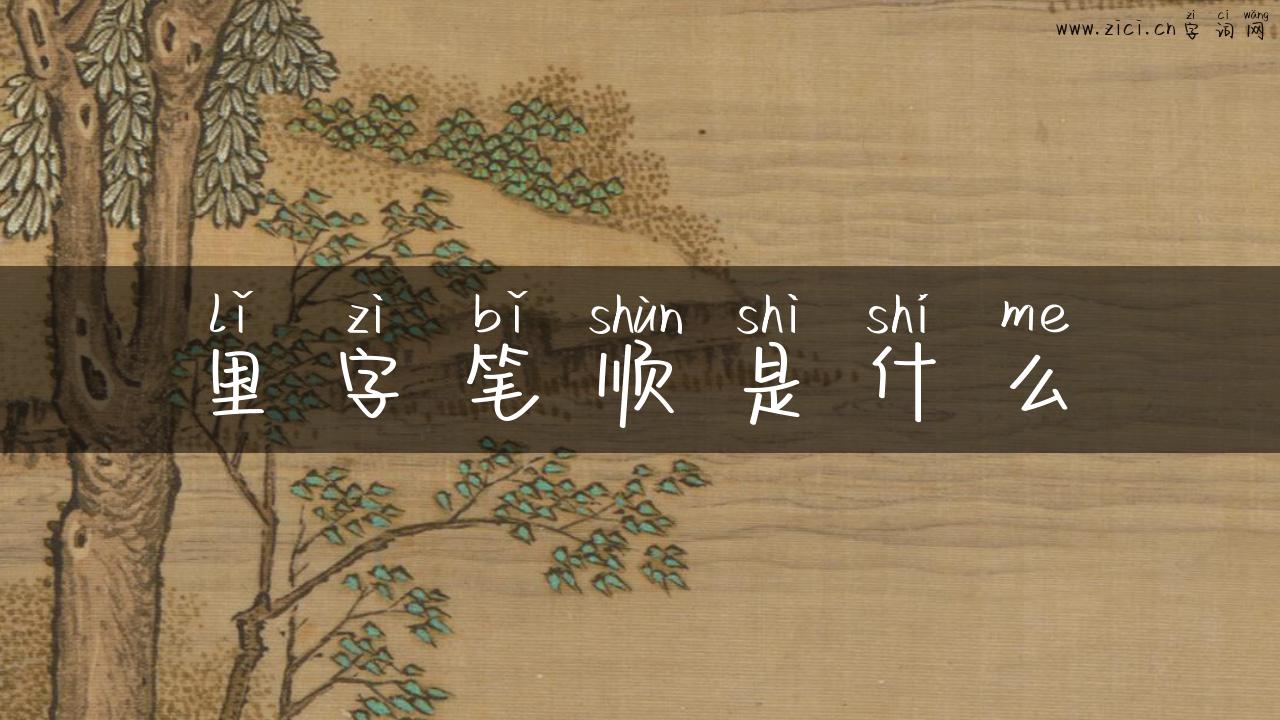 zì cí wǎng
www.zici.cn 字词网
lǐ zì bǐ shùn shì shí me
里字笔顺是什么